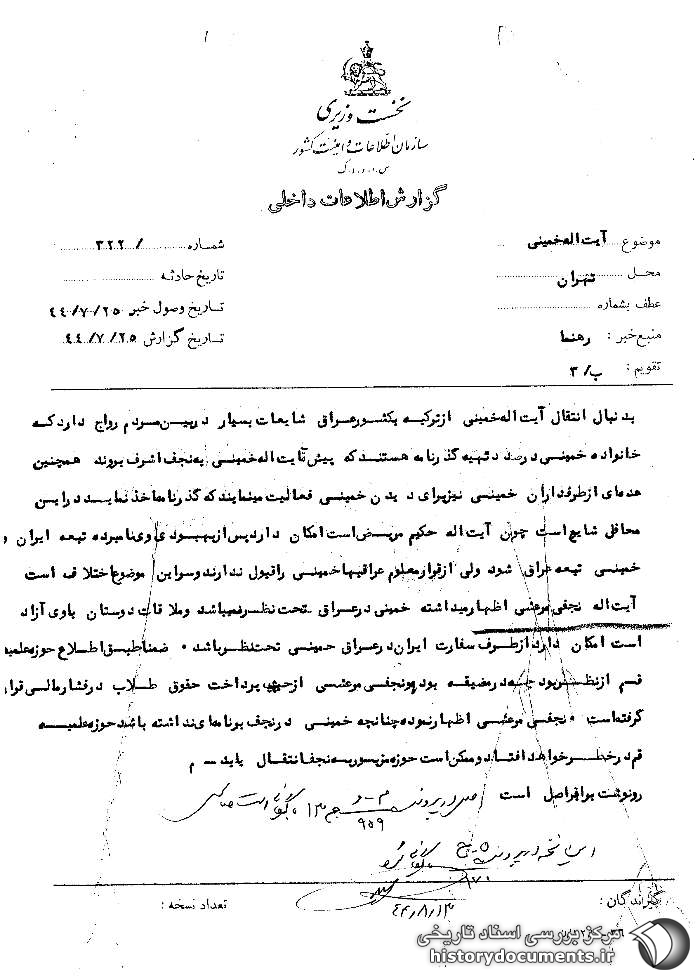 نخست وزیری
سازمان اطلاعات و امنیت کشور
س.ا.و.ا.ک
گزارش اطلاعات داخلی
موضوع آیت اله خمینی
محل تهران
عطف بشماره
منبع خبر : رهنما
تقویم : ب/۳
شماره /۳۲۲
تاریخ حادثه
تاریخ وصول خبر ۴۴/۷/۲۵
تاریخ گزارش ۴۴/۷/۲۵
بدنبال انتقال آیت اله خمینی ازترکیه بکشورعراق شایعات بسیار دربین مردم رواج دارد که
خانواده خمینی درصدد تهیه گذرنامه هستند که پیش آیت اله خمینی به نجف اشرف بروند همچنین
عده‌ای ازطرفداران خمینی نیزبرای دیدن خمینی فعالیت مینمایند که گذرنامه اخذ نمایند دراین
محافل شایع است چون آیت اله حکیم مریض است امکان دارد پس ازبهبودی وی نامبرده تبعه ایران و
خمینی تبعه عراق شود ولی ازقرارمعلوم عراقیها خمینی راقبول ندارند وسراین موضوع اختلاف است
آیت اله نجفی مرعشی اظهارمیداشته خمینی درعراق تحت نظرنمیباشد وملاقات دوستان باوی آزاد
است امکان دارد ازطرف سفارت ایران درعراق خمینی تحت نظرباشد . ضمنا طبق اطلاع حوزه علمیه
قم ازنظربودجه درمضیقه بوده ونجفی مرعشی ازجهت پرداخت حقوق طلاب درفشارمالی قرار
گرفته است . نجفی مرعشی اظهارنموده چنانچه خمینی درنجف برنامه‌ای نداشته باشد حوزه علمیه
قم درخطرخواهد افتاد وممکن است حوزه مزبوربه نجف انتقال یابد - م
رونوشت برابراصل است
اصل در پرونده
۹۵۹
این نسخه در پرونده
۴۴/۸/۱۳
گیرندگان :
تعداد نسخه :
مرکز بررسی اسناد تاریخی
historydocuments.ir